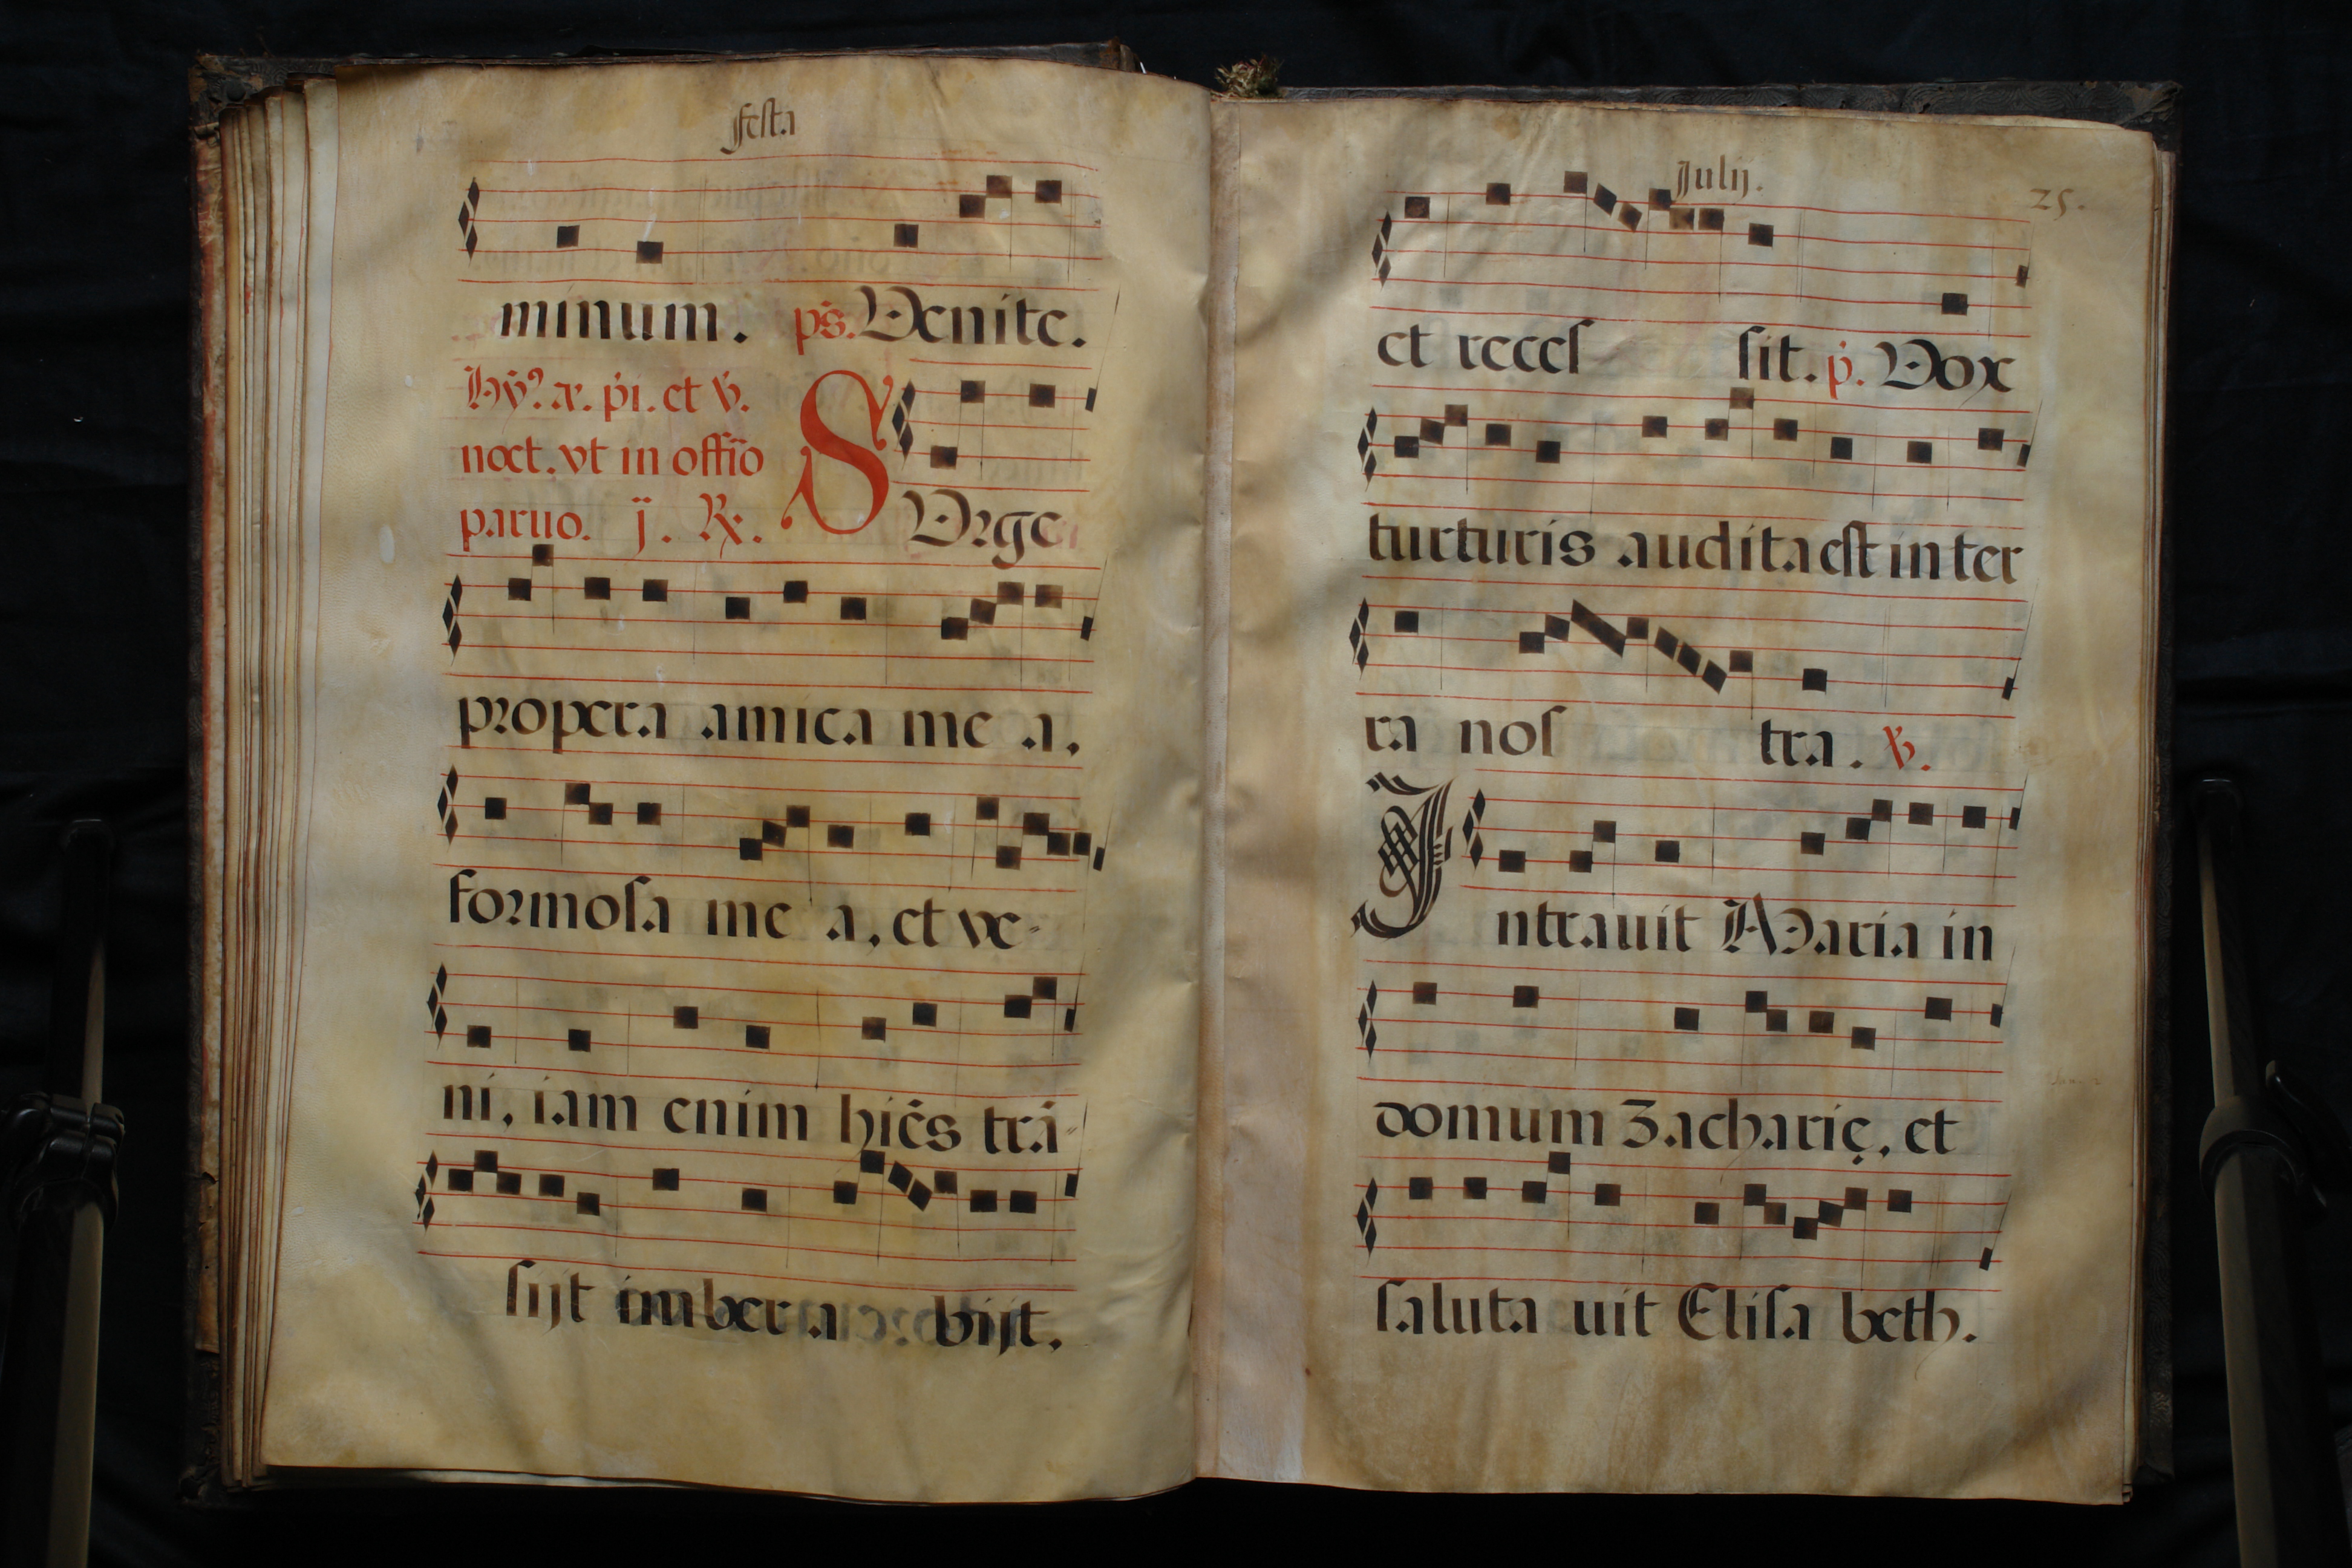 festa
minum. ps. Venite.
Hỹ? æ. pi. et v.
noct. vt in offiō
paruo. j. ℟.
SVrge
propera amica me a,
formosa me a, et ve-
ni, iam enim hiēs trá-
sijt imber a bijt.
Julij.
25.
et recces sit. p. Vox
turturis audita est in ter
ra nos tra. ℣.
Intrauit Maria in
domum Zacharię, et
saluta uit Elisa beth.